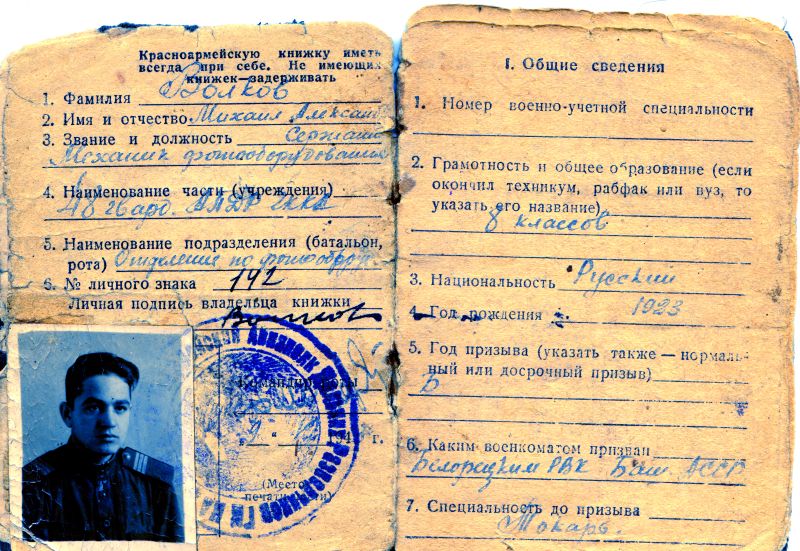 Красноармейскую книжку иметь
всегда при себе. Не имеющих
книжек—задерживать
1. Фамилия Волков
2. Имя и отчество Михаил Александ
3. Звание и должность Сержант
Механик фотооборудования
4. Наименование части (учреждения)
48 гвард. АПДР ГККА
5. Наименование подразделения (батальон,
рота) Отделение по фотообору
6. № личного знака 142
Личная подпись владельца книжки
Волков
Командир роты
194 г.
(Место
печати части)
I. Общие сведения
1. Номер военно-учетной специальности
2. Грамотность и общее образование (если
окончил техникум, рабфак или вуз, то
указать его название)
8 классов
3. Национальность Русский
4. Год рождения 1923
5. Год призыва (указать также — нормаль-
ный или досрочный призыв)
6. Каким военкоматом призван
Белорецким РВК Баш АССР
7. Специальность до призыва
Токарь.